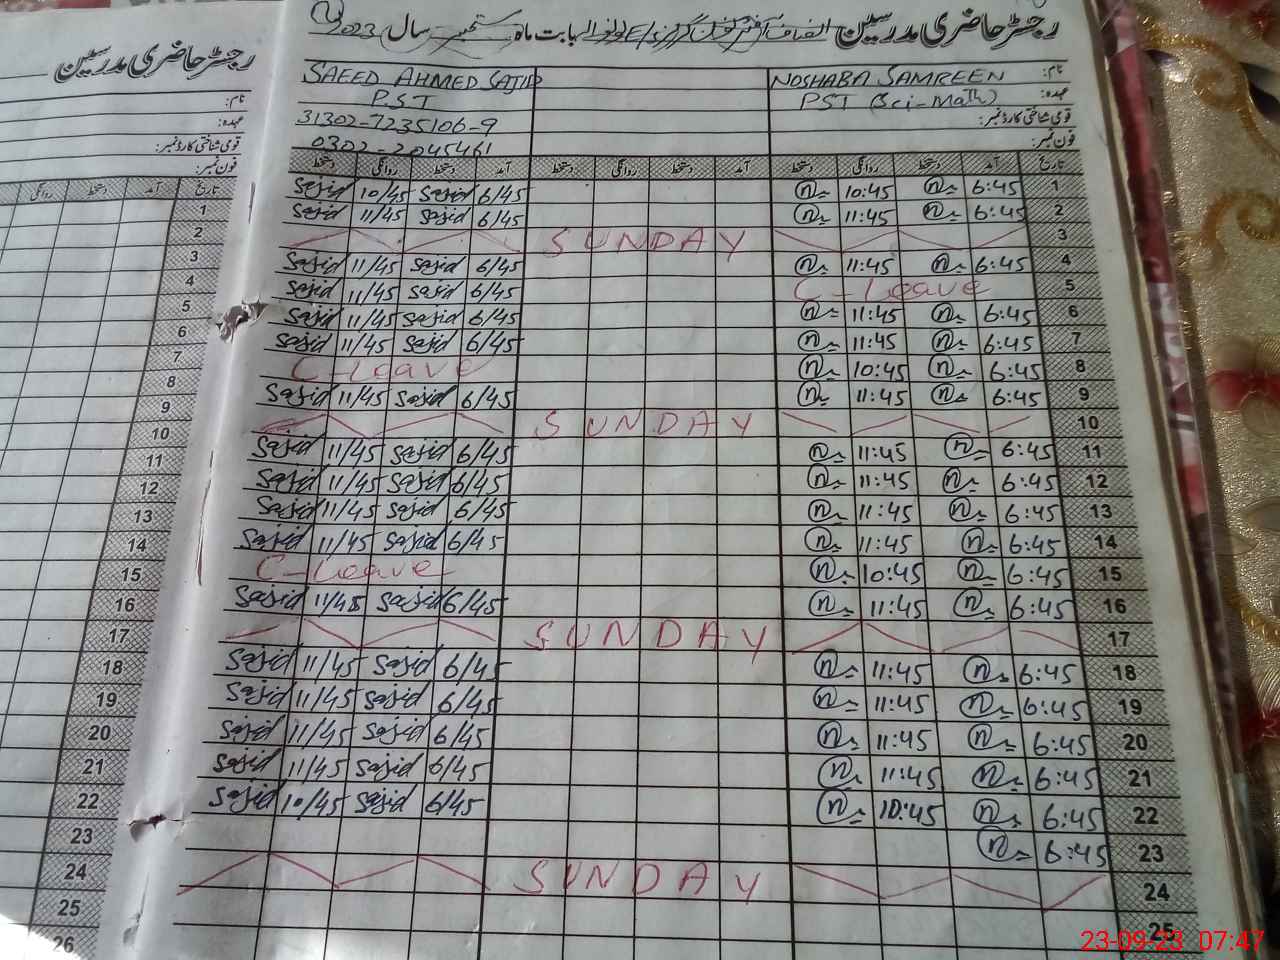 رجسٹر حاضری مدرسین
نام:
عہدہ:
قومی شناختی کارڈ نمبر:
فون نمبر:
تاریخ آمد دستخط روانگی
1
2
3
4
5
6
7
8
9
10
11
12
13
14
15
16
17
18
19
20
21
22
23
24
25
26
رجسٹر حاضری مدرسین بابت ماہ ستمبر سال 2023
نام: NOSHABA SAMREEN SAEED AHMED SAJID
عہدہ: PST (Sci-Math) PST
قومی شناختی کارڈ نمبر: 31302-7235106-9
فون نمبر: 0302-2045461
تاریخ آمد دستخط روانگی دستخط آمد دستخط روانگی دستخط آمد دستخط روانگی دستخط
Sajid 10/45 Sajid 6/45 n 10:45 n 6:45 1
Sajid 11/45 Sajid 6/45 n 11:45 n 6:45 2
SUNDAY 3
Sajid 11/45 Sajid 6/45 n 11:45 n 6:45 4
Sajid 11/45 Sajid 6/45 C-Leave 5
Sajid 11/45 Sajid 6/45 n 11:45 n 6:45 6
Sajid 11/45 Sajid 6/45 n 11:45 n 6:45 7
C-Leave n 10:45 n 6:45 8
Sajid 11/45 Sajid 6/45 n 11:45 n 6:45 9
SUNDAY 10
Sajid 11/45 Sajid 6/45 n 11:45 n 6:45 11
Sajid 11/45 Sajid 6/45 n 11:45 n 6:45 12
Sajid 11/45 Sajid 6/45 n 11:45 n 6:45 13
Sajid 11/45 Sajid 6/45 n 11:45 n 6:45 14
C-Leave n 10:45 n 6:45 15
Sajid 11/45 Sajid 6/45 n 11:45 n 6:45 16
SUNDAY 17
Sajid 11/45 Sajid 6/45 n 11:45 n 6:45 18
Sajid 11/45 Sajid 6/45 n 11:45 n 6:45 19
Sajid 11/45 Sajid 6/45 n 11:45 n 6:45 20
Sajid 11/45 Sajid 6/45 n 11:45 n 6:45 21
Sajid 10/45 Sajid 6/45 n 10:45 n 6:45 22
n 6:45 23
SUNDAY 24
25
23-09-23 07:47